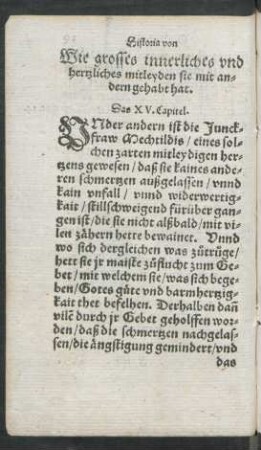 Historia von
Wie grosses innerliches vnd
hertzliches mitleyden sie mit an-
dern gehabt hat.
Das XV. Capitel.
VNder andern ist die Junck-
fraw Mechtildis / eines sol-
chen zarten mitleydigen her-
tzens gewesen / daß sie kaines ande-
ren schmertzen außgelassen / vnnd
kain vnfall / vnnd widerwertig-
kait / stillschweigend fürüber gan-
gen ist / die sie nicht alßbald / mit vi-
len zähern hette bewainet. Vnnd
wo sich dergleichen was zůtrüge /
hett sie jr maiste zůflucht zum Ge-
bet / mit welchem sie / was sich bege-
ben / Gotes güte vnd barmhertzig-
kait thet befelhen. Derhalben dañ
vilẽ durch jr Gebet geholffen wor-
den / daß die schmertzen nachgelas-
sen / die ängstigung gemindert / vnd
das